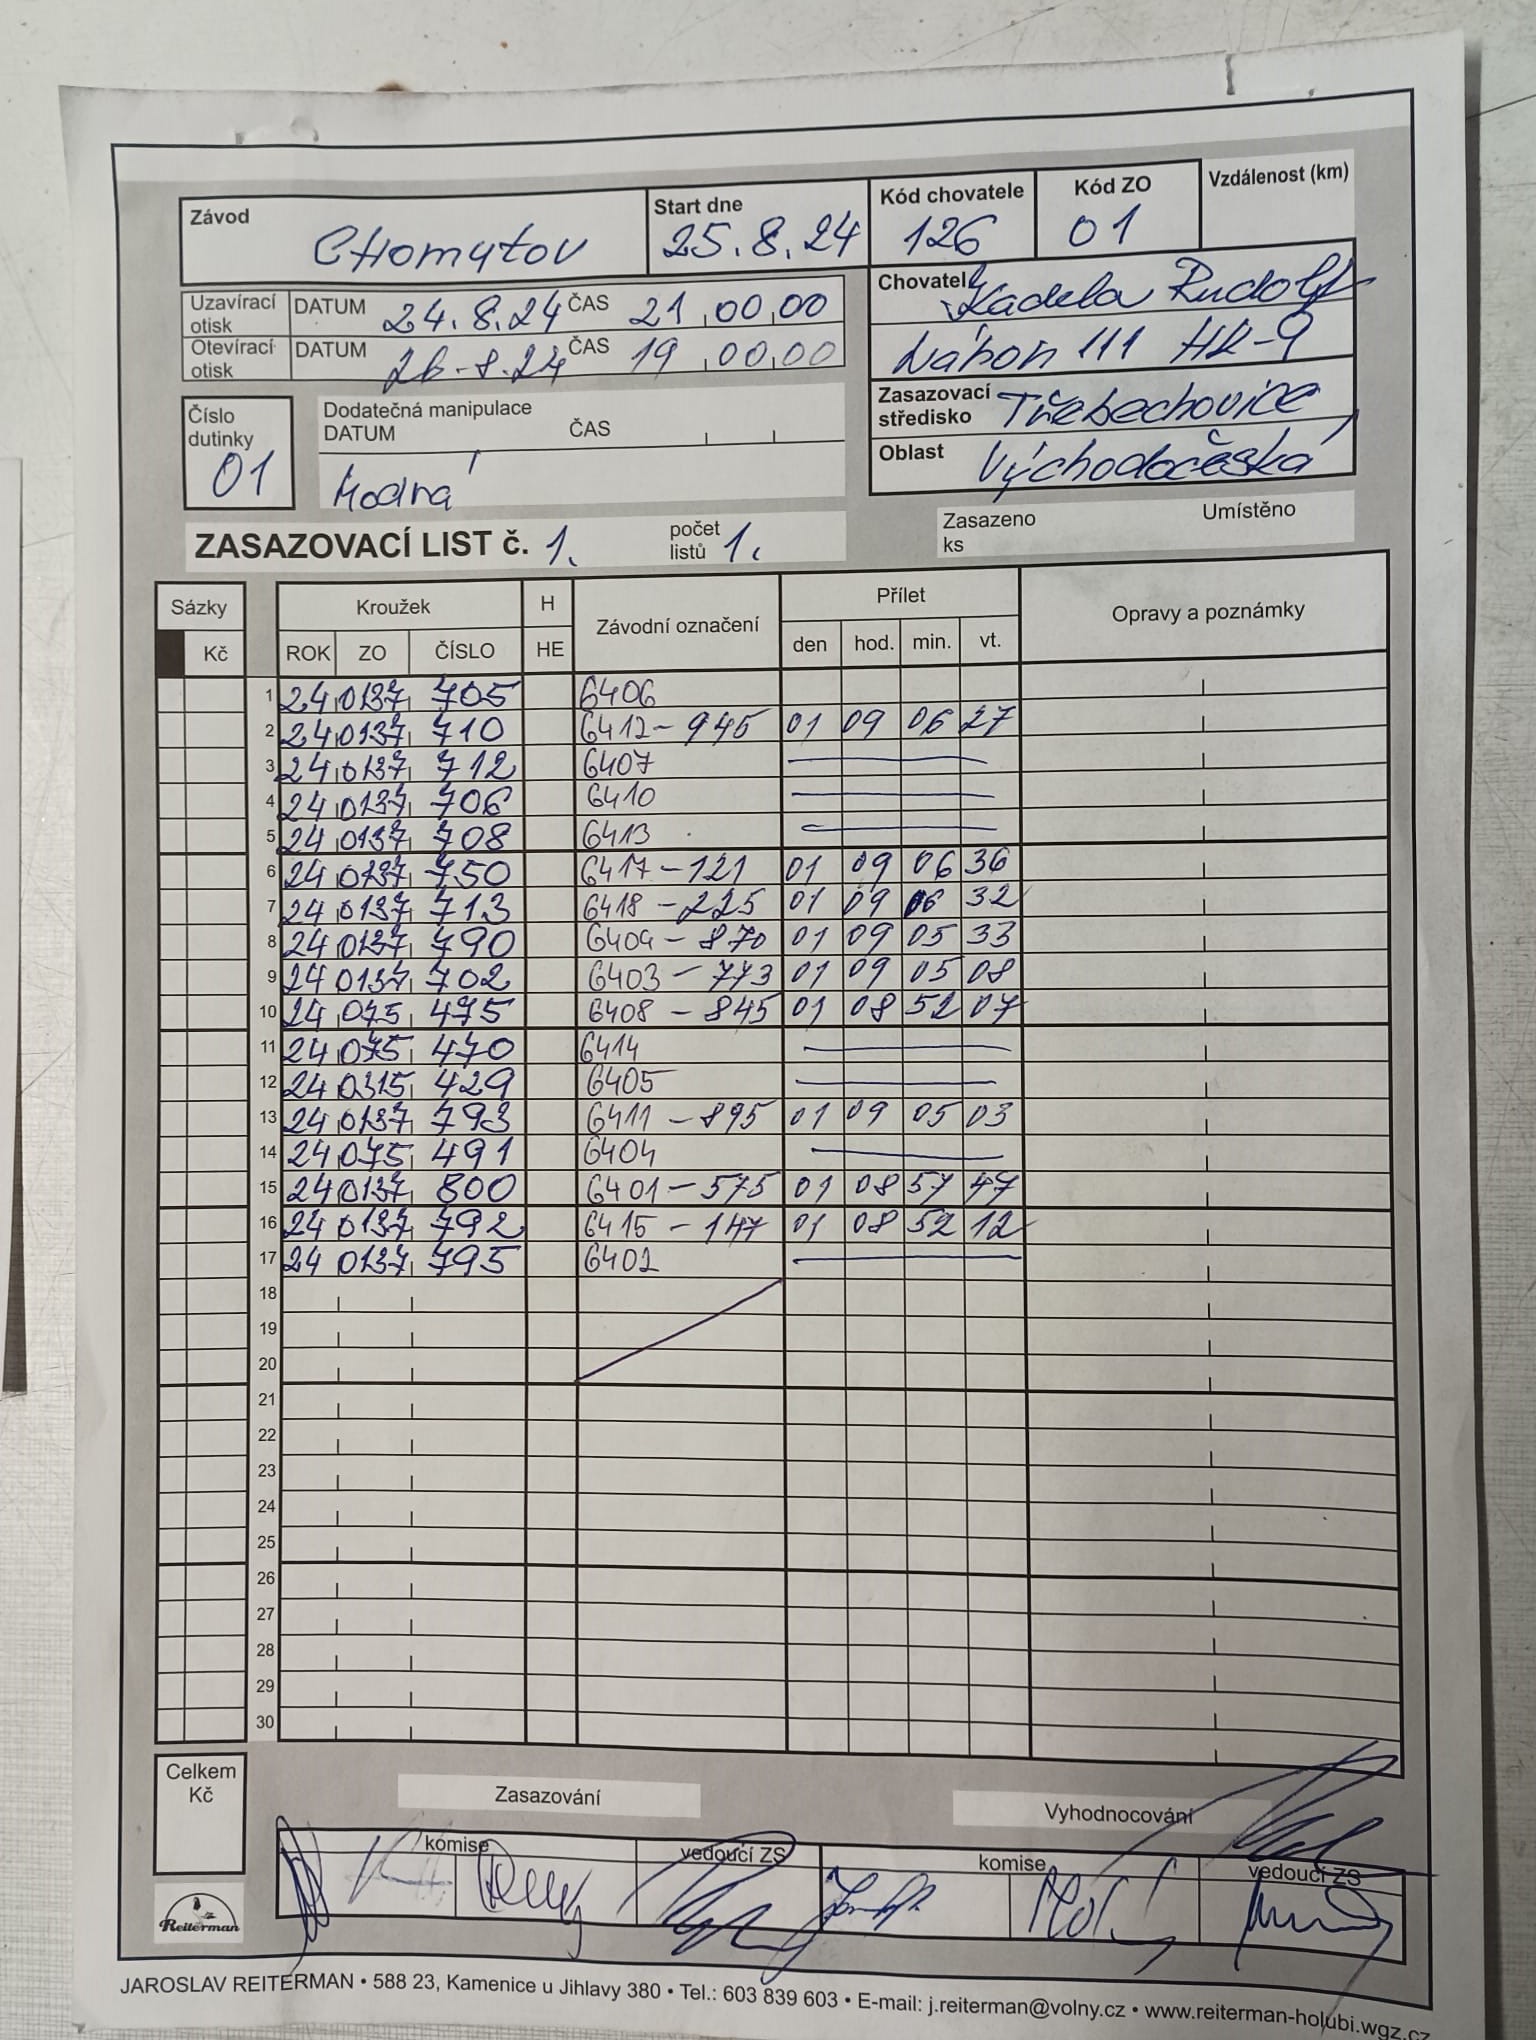 Závod CHomutov Start dne 25.8.24 Kód chovatele 126 Kód ZO 01 Vzdálenost (km)
Uzavírací otisk DATUM 24.8.24 ČAS 21,00,00
Otevírací otisk DATUM 26.8.24 ČAS 19,00,00
Chovatel Kadela Rudolf
Náhon 111 HK-9
Zasazovací středisko Třebechovice
Oblast Východočeská
Číslo dutinky 01
Dodatečná manipulace
DATUM ČAS
Modrá
ZASAZOVACÍ LIST č. 1. počet listů 1.
Zasazeno ks Umístěno
Sázky Kroužek H Závodní označení Přílet Opravy a poznámky
Kč ROK ZO ČÍSLO HE den hod. min. vt.
1 24 0137 705 6406
2 24 0137 710 6412 - 945 01 09 06 27
3 24 0137 712 6407
4 24 0137 706 6410
5 24 0137 708 6413
6 24 0137 750 6417 - 121 01 09 06 36
7 24 0137 713 6418 - 225 01 09 06 32
8 24 0137 790 6409 - 870 01 09 05 33
9 24 0137 702 6403 - 773 01 09 05 08
10 24 075 475 6408 - 845 01 08 52 07
11 24 075 470 6414
12 24 0315 429 6405
13 24 0137 793 6411 - 895 01 09 05 03
14 24 075 491 6404
15 24 0137 800 6401 - 575 01 08 57 47
16 24 0137 792 6415 - 147 01 08 52 12
17 24 0137 795 6402
18
19
20
21
22
23
24
25
26
27
28
29
30
Celkem Kč
Zasazování Vyhodnocování
komise vedoucí ZS komise vedoucí ZS
Reiterman
JAROSLAV REITERMAN • 588 23, Kamenice u Jihlavy 380 • Tel.: 603 839 603 • E-mail: j.reiterman@volny.cz • www.reiterman-holubi.wgz.cz